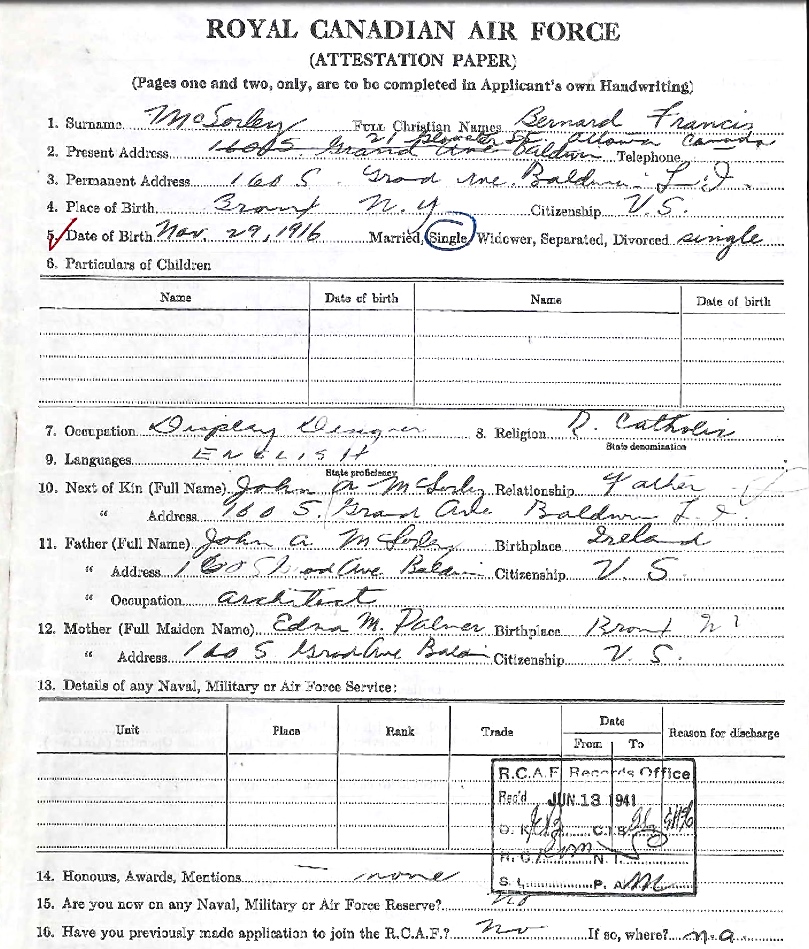 ROYAL CANADIAN AIR FORCE
(ATTESTATION PAPER)
(Pages one and two, only, are to be completed in Applicant's own Handwriting)
1. Surname McSorley FULL Christian Names Bernard Francis
21 St. Ottawa Canada
2. Present Address 160 S. Grand Ave Baldwin Telephone
3. Permanent Address 160 S. Grand Ave. Baldwin L.I.
4. Place of Birth Bronx N.Y Citizenship U.S.
5. Date of Birth Nov. 29, 1916 Married, Single, Widower, Separated, Divorced single
6. Particulars of Children
Name Date of birth Name Date of birth
7. Occupation Display Designer 8. Religion R. Catholic
State denomination
9. Languages ENGLISH
State proficiency
10. Next of Kin (Full Name) John A McSorley Relationship Father
" Address 160 S. Grand Ave Baldwin L.I.
11. Father (Full Name) John A. McSorley Birthplace Ireland
" Address 160 S Grand Ave Baldwin Citizenship U.S.
" Occupation architect
12. Mother (Full Maiden Name) Edna M. Palmer Birthplace Bronx NY
" Address 160 S Grand Ave Baldwin Citizenship U.S.
13. Details of any Naval, Military or Air Force Service:
Unit Place Rank Trade Date Reason for discharge
From To
R.C.A.F. Records Office
Rec'd JUN 13 1941
O.K. C.I.S.
N.I.
S.L. P.A.
14. Honours, Awards, Mentions none
15. Are you now on any Naval, Military or Air Force Reserve? No
16. Have you previously made application to join the R.C.A.F.? No If so, where? n.a.